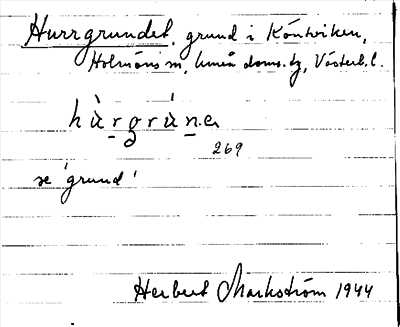 Hurrgrundet, grund i Köntviken,
Holmöns sn, Umeå doms. tg, Västerb. l.
hùrgrúne
269
se 'grund'
Herbert Markström 1944